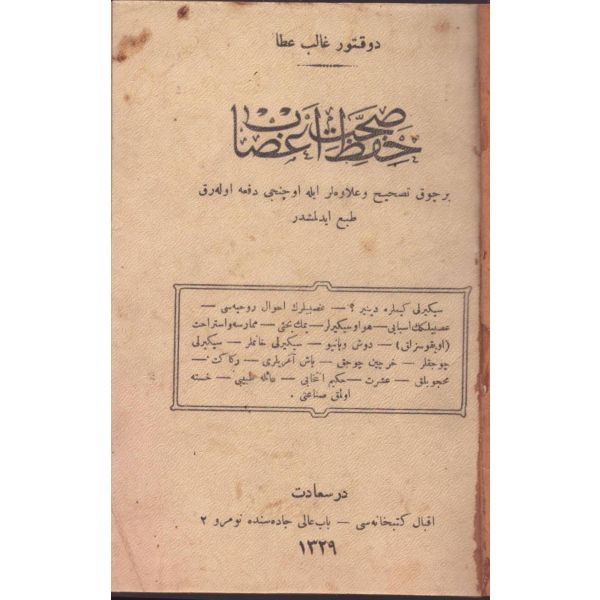 دوقتور غالب عطا
حفظ صحت اعصاب
برچوق تصحیح و علاوه‌لر ایله اوچنجی دفعه اوله‌رق
طبع ایدلمشدر
سیکیرلی کیملره دینیر ؟ — عصبیلرك احوال روحیه‌سی —
عصبیلكك اسبابی — هوا و سیکیرلر — یمك بحثی — ممارسه و استراحت
(اویقوسزلق) — دوش و بانیو — سیکیرلی خانملر — سیکیرلی
چوجقلر — خرچین چوجق — باش آغریلری — رکاکت —
محجوبلق — عشرت — حکیم انتخابی — عائله طبیبی — خسته
اولمق صناعتی .
در سعادت
اقبال کتبخانه‌سی — باب عالی جاده‌سنده نومرو ۲
۱۳۲۹